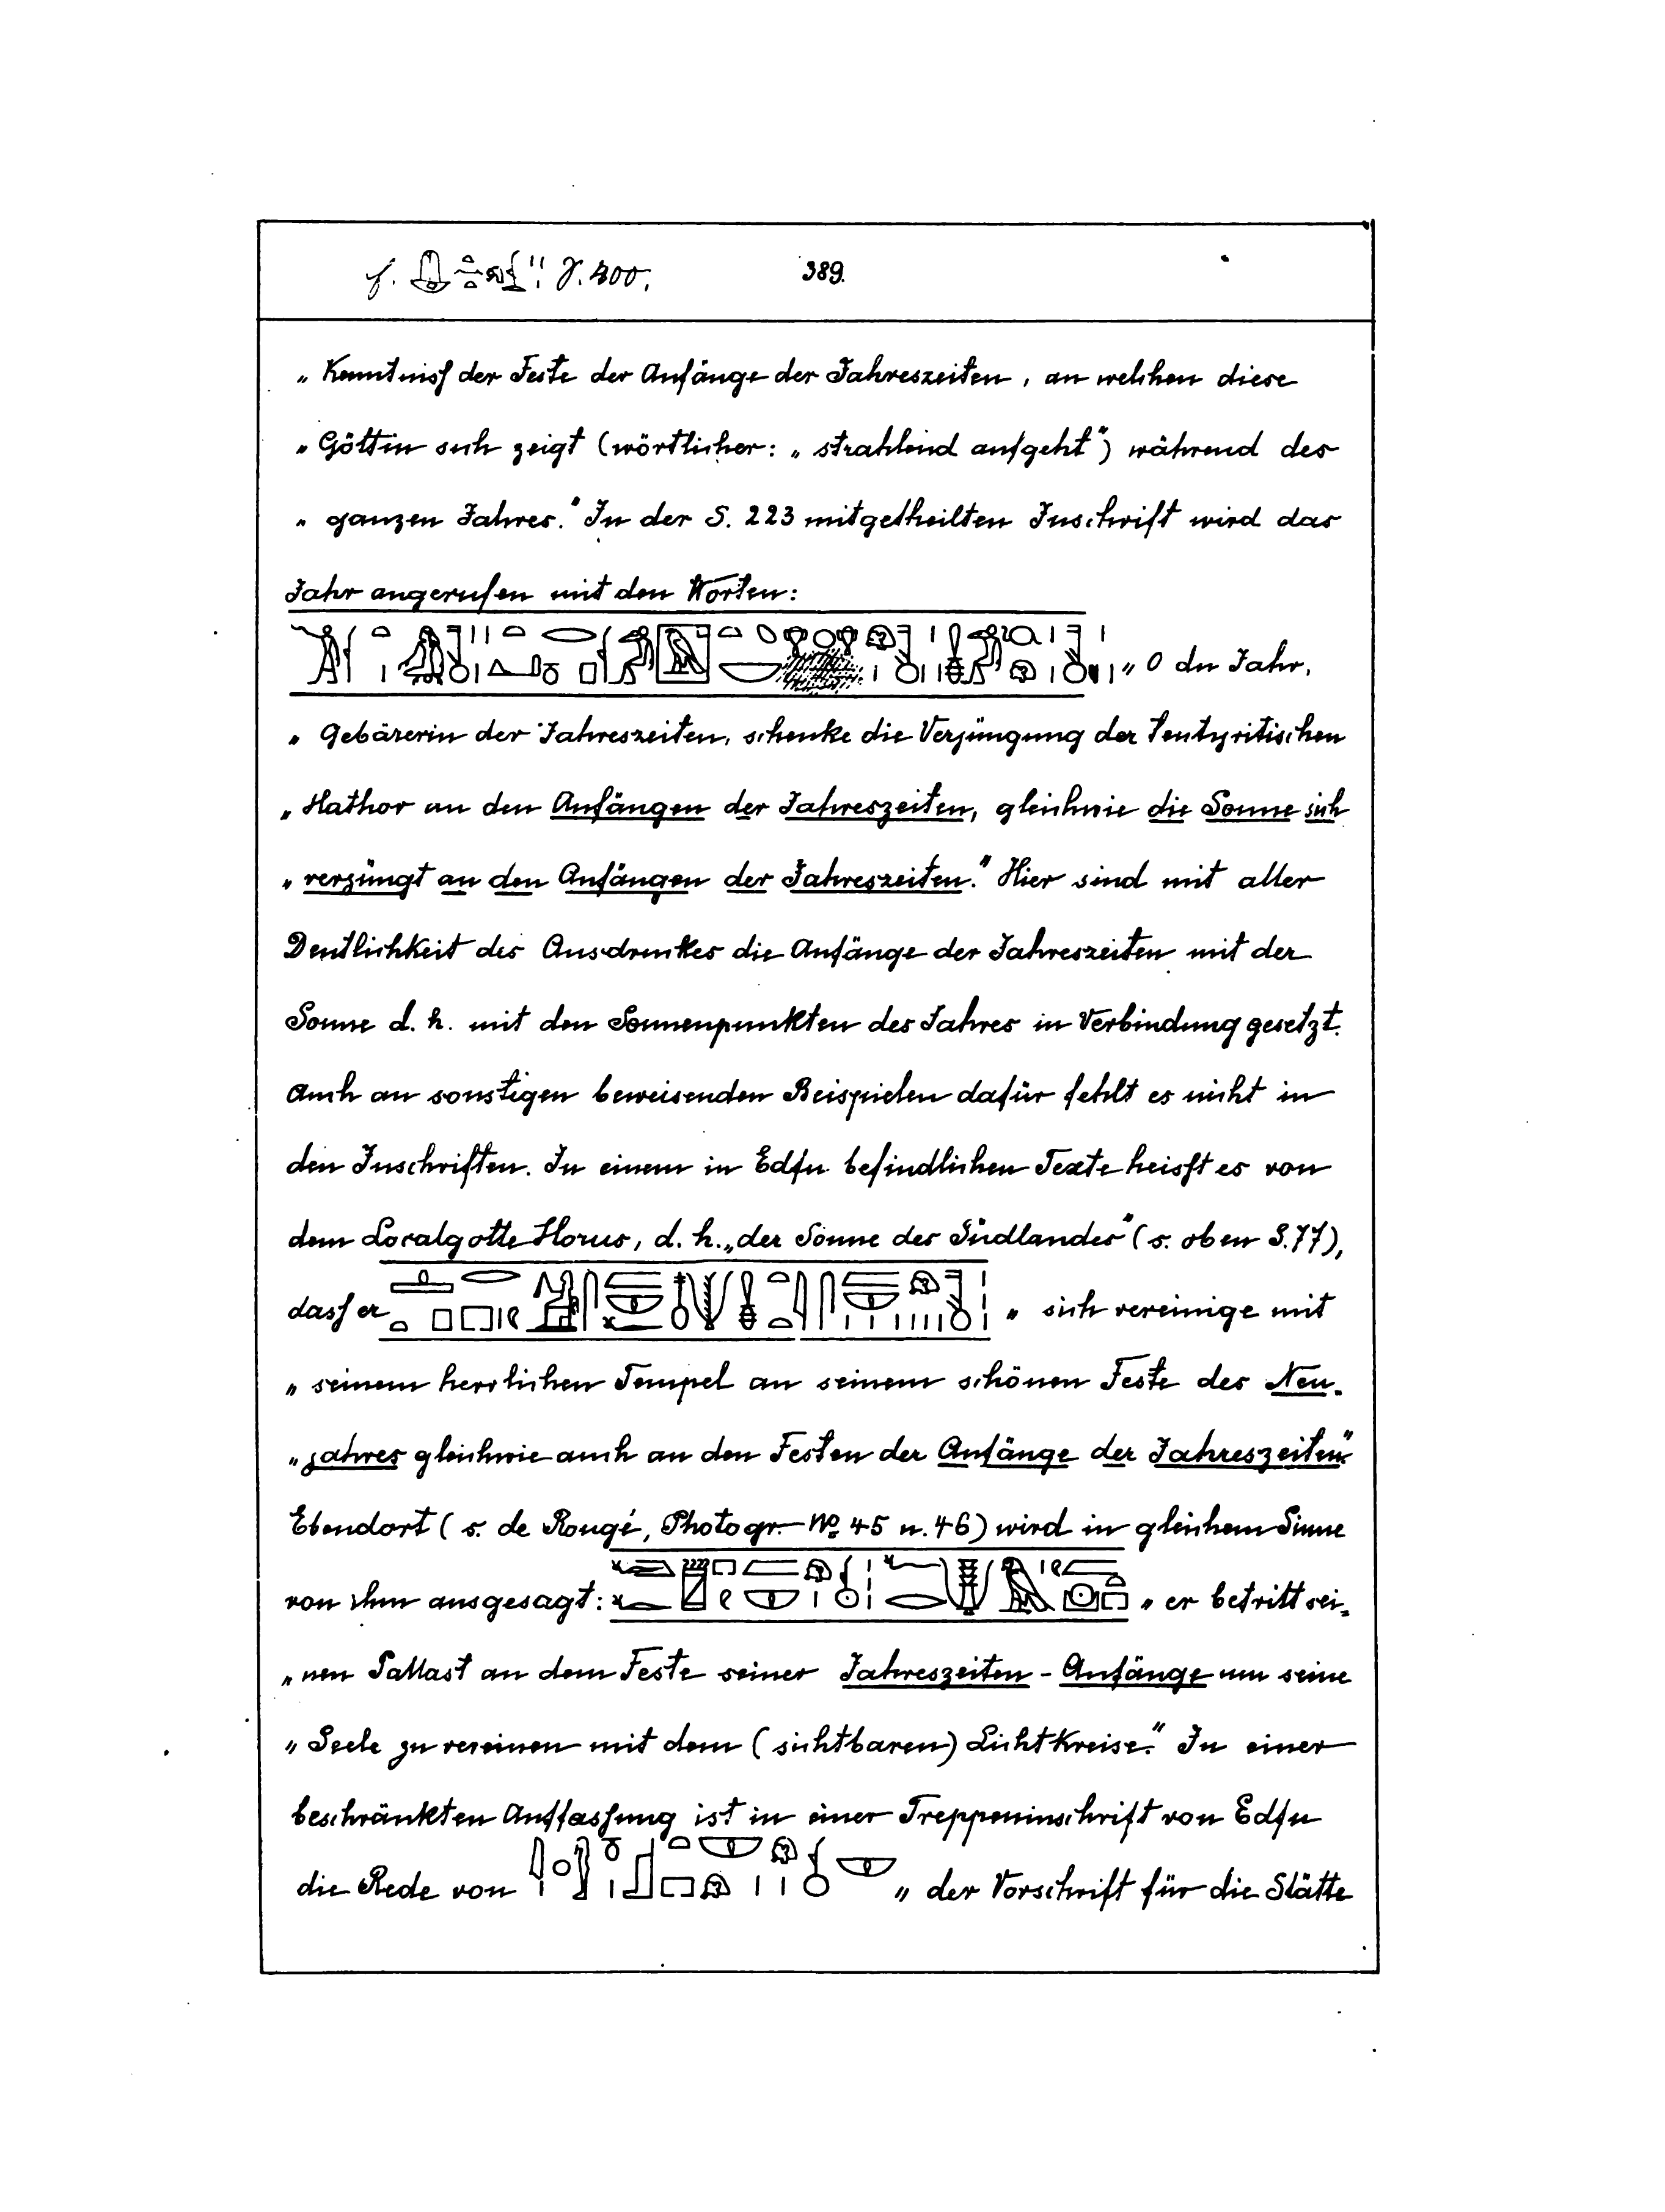 f. S. 400. 389.
„Kenntniss der Feste der Anfänge der Jahreszeiten, an welchen diese
„Göttin sich zeigt (wörtlicher: „strahlend aufgeht“) während des
„ganzen Jahres.“ In der S. 223 mitgetheilten Inschrift wird das
Jahr angerufen mit den Worten:
„O du Jahr,
„Gebärerin der Jahreszeiten, schenke die Verjüngung der Tentyritischen
„Hathor an den Anfängen der Jahreszeiten, gleichwie die Sonne sich
„verjüngt an den Anfängen der Jahreszeiten.“ Hier sind mit aller
Deutlichkeit des Ausdruckes die Anfänge der Jahreszeiten mit der
Sonne d. h. mit den Sonnenpunkten des Jahres in Verbindung gesetzt.
Auch an sonstigen beweisenden Beispielen dafür fehlt es nicht in
den Inschriften. In einem in Edfu befindlichen Texte heisst es von
dem Localgotte Horus, d. h. „der Sonne des Südlandes“ (s. oben S. 77),
dass er „sich vereinige mit
„seinem herrlichen Tempel an seinem schönen Feste des Neu-
„jahres gleichwie auch an den Festen der Anfänge der Jahreszeiten“.
Ebendort (s. de Rougé, Photogr. No. 45 u. 46) wird in gleichem Sinne
von ihm ausgesagt: „er betritt sei-
„nen Pallast an dem Feste seiner Jahreszeiten-Anfänge um seine
„Seele zu vereinen mit dem (sichtbaren) Lichtkreise.“ In einer
beschränkten Auffassung ist in einer Treppeninschrift von Edfu
die Rede von „der Vorschrift für die Stätte